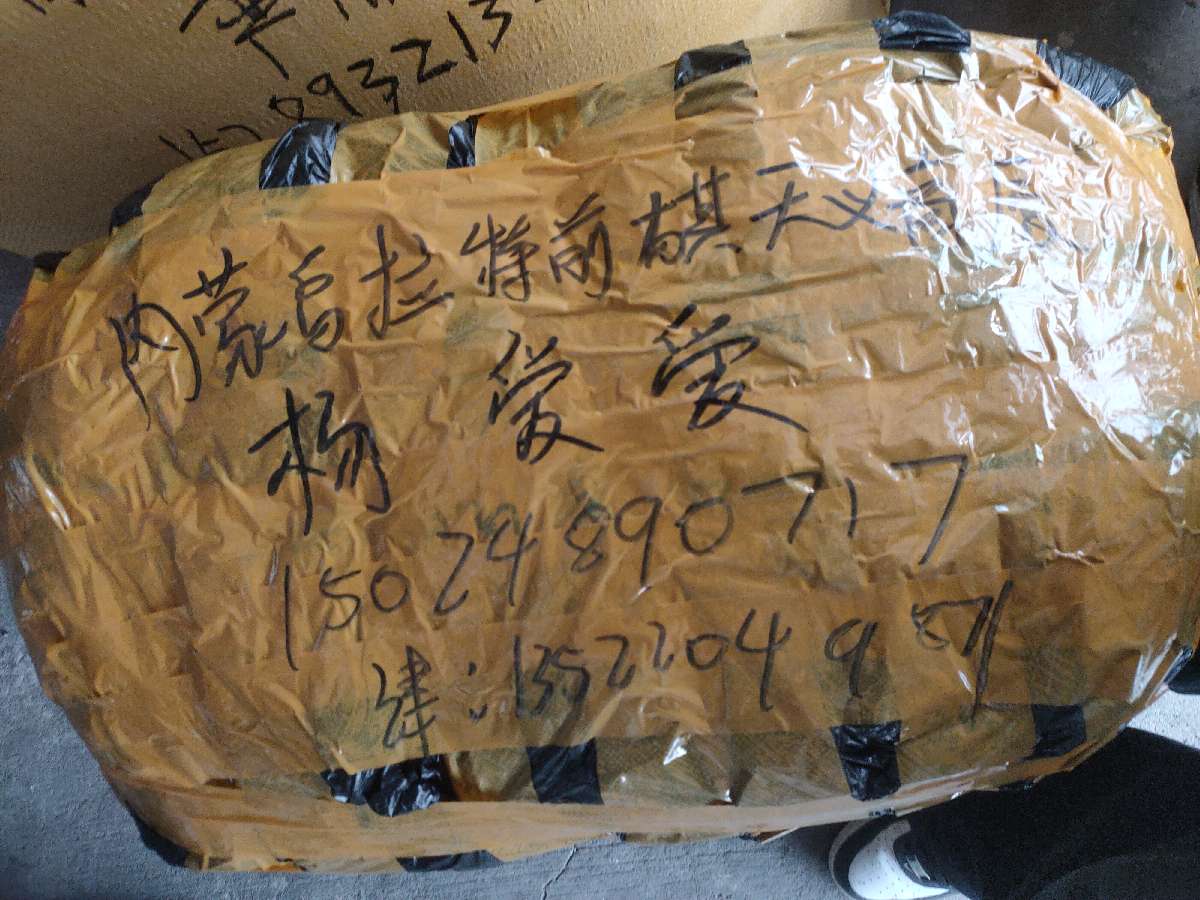 157893213
内蒙乌拉特前棋天义
杨爱爱
15024890717
建:13522049871